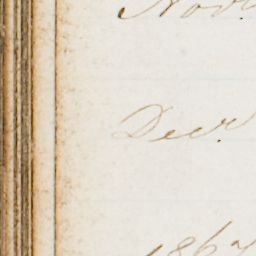 Novr
Decr
1867